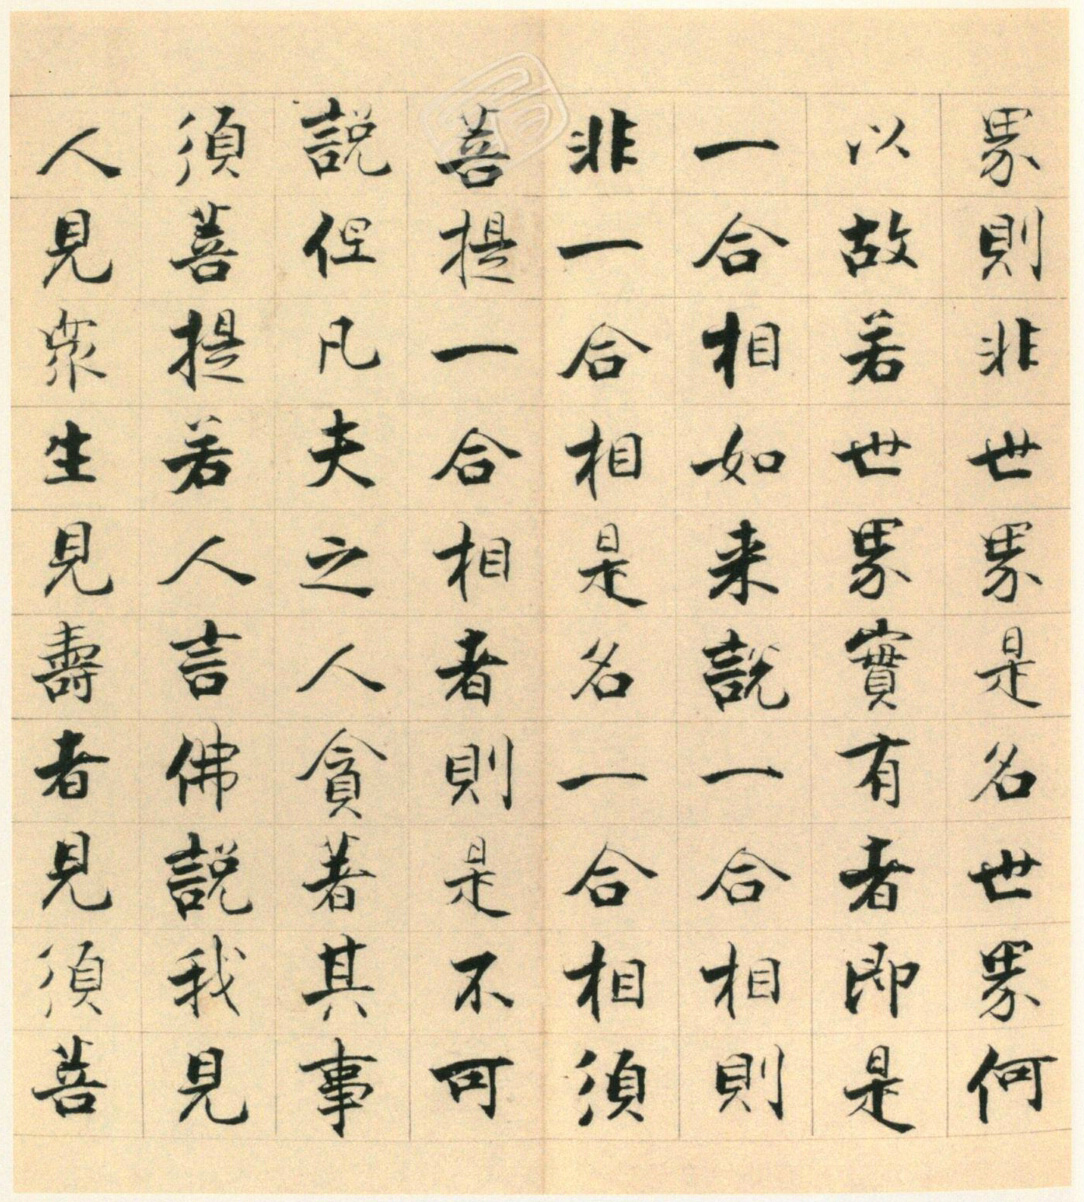 界則非世界是名世界何
以故若世界實有者即是
一合相如来說一合相則
非一合相是名一合相須
菩提一合相者則是不可
說但凡夫之人貪著其事
須菩提若人言佛說我見
人見衆生見壽者見須菩